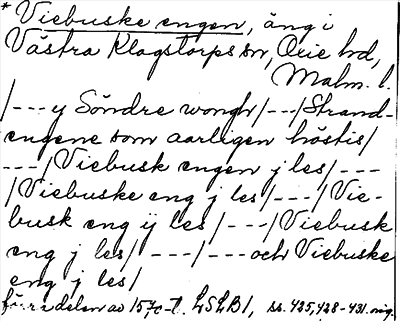 * Viebuske engen, äng i
Västra Klagstorps sn, Oxie hd,
Malm. l.
/--- y Söndre wongh /---/ Strand-
engene som aarligen höstis /
---/ Viebusk engen j les /---
/ Viebuske eng j les /---/ Vie-
busk eng ij les /---/ Viebusk
eng j les /---/--- och Viebuske
eng j les /
förra delen av 1570-t. LSLB 1, ss. 425, 428-431. orig.